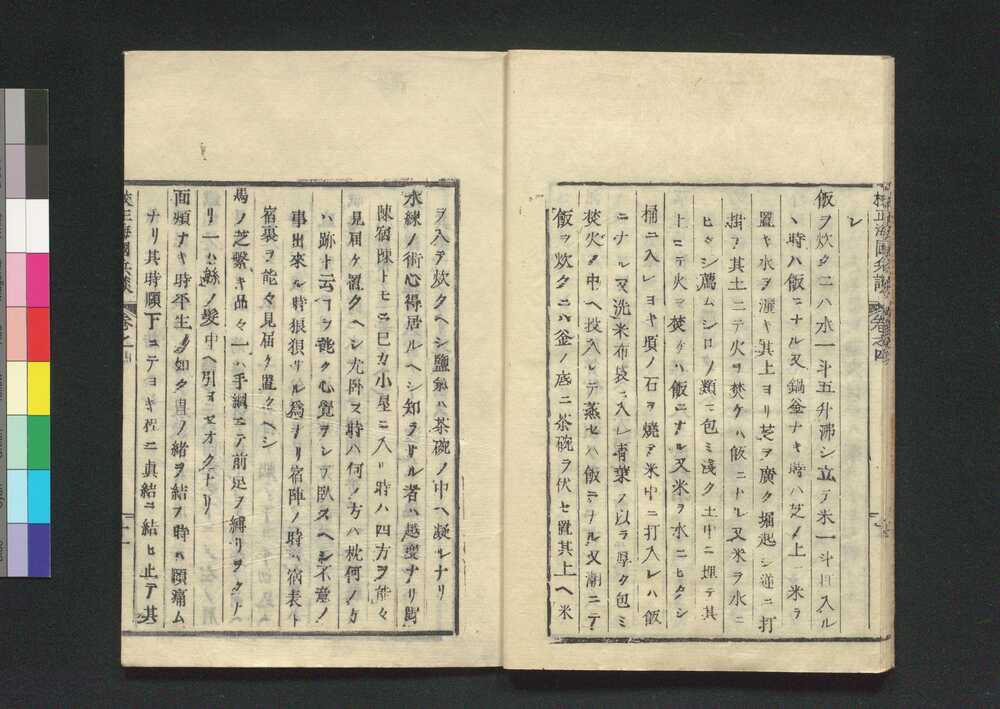 校正海国兵談 巻之四
レ
飯ヲ炊クニハ水一斗五升沸シ立テ米一斗ヲ入ル
時ハ飯ニナル又鍋釜ナキ時ハ芝ノ上ニ米ヲ
置キ水ヲ灑キ其上ヨリ芝ヲ廣ク堀起シ逆ニ打
掛ヲ其土ニテ火ヲ焚ケハ飯ニナレ又米ヲ水ニ
ヒタシ薦ムシロノ類ニ包ミ淺ク土中ニ埋テ其
上ニテ火ヲ焚ケハ飯ニナル又米ヲ水ニヒタシ
桶ニ入レヨキ頃ノ石ヲ燒テ米中ニ打入レハ飯
ニナル又洗米布袋ニ入レ青葉ノ以ラ厚ク包ミ
焚火ノ中ヘ投入レテ蒸セハ飯ニナル又潮ニテ
飯ヲ炊クニハ釜ノ底ニ茶碗ヲ伏セ置其上ヘ米
ヲ入テ炊クヘシ鹽氣ハ茶碗ノ中ヘ凝ルナリ
水練ノ術心得居ルヘシ知ラサル者ハ越度ナリ
陳宿陳トモニ己カ小屋ニ入リ時ハ四方ヲ能々
見届ケ置クヘシ尤臥ス時ハ何ノ方ハ枕何ノ方
ハ跡ト云フヲ能ク心覺ヲシテ臥スヘシ不意ノ
事出來ル時狼狽サル為ナリ宿陣ノ時ハ宿表ト
宿裏ヲ能々見届ケ置クヘシ
馬ノ芝繋キ品々一ハ手綱ニテ前足ヲ縛リヲクナ
リ一ハ鬣ノ髮中ヘ引ヨセオクナリ
面頬ナキ時平生ノ如ク冑ノ緒ヲ結フ時ハ頤痛ム
ナリ其時頤下ニテヨキ程ニ真結ニ結ヒ止テ其
校正海國兵談 巻之四 十一